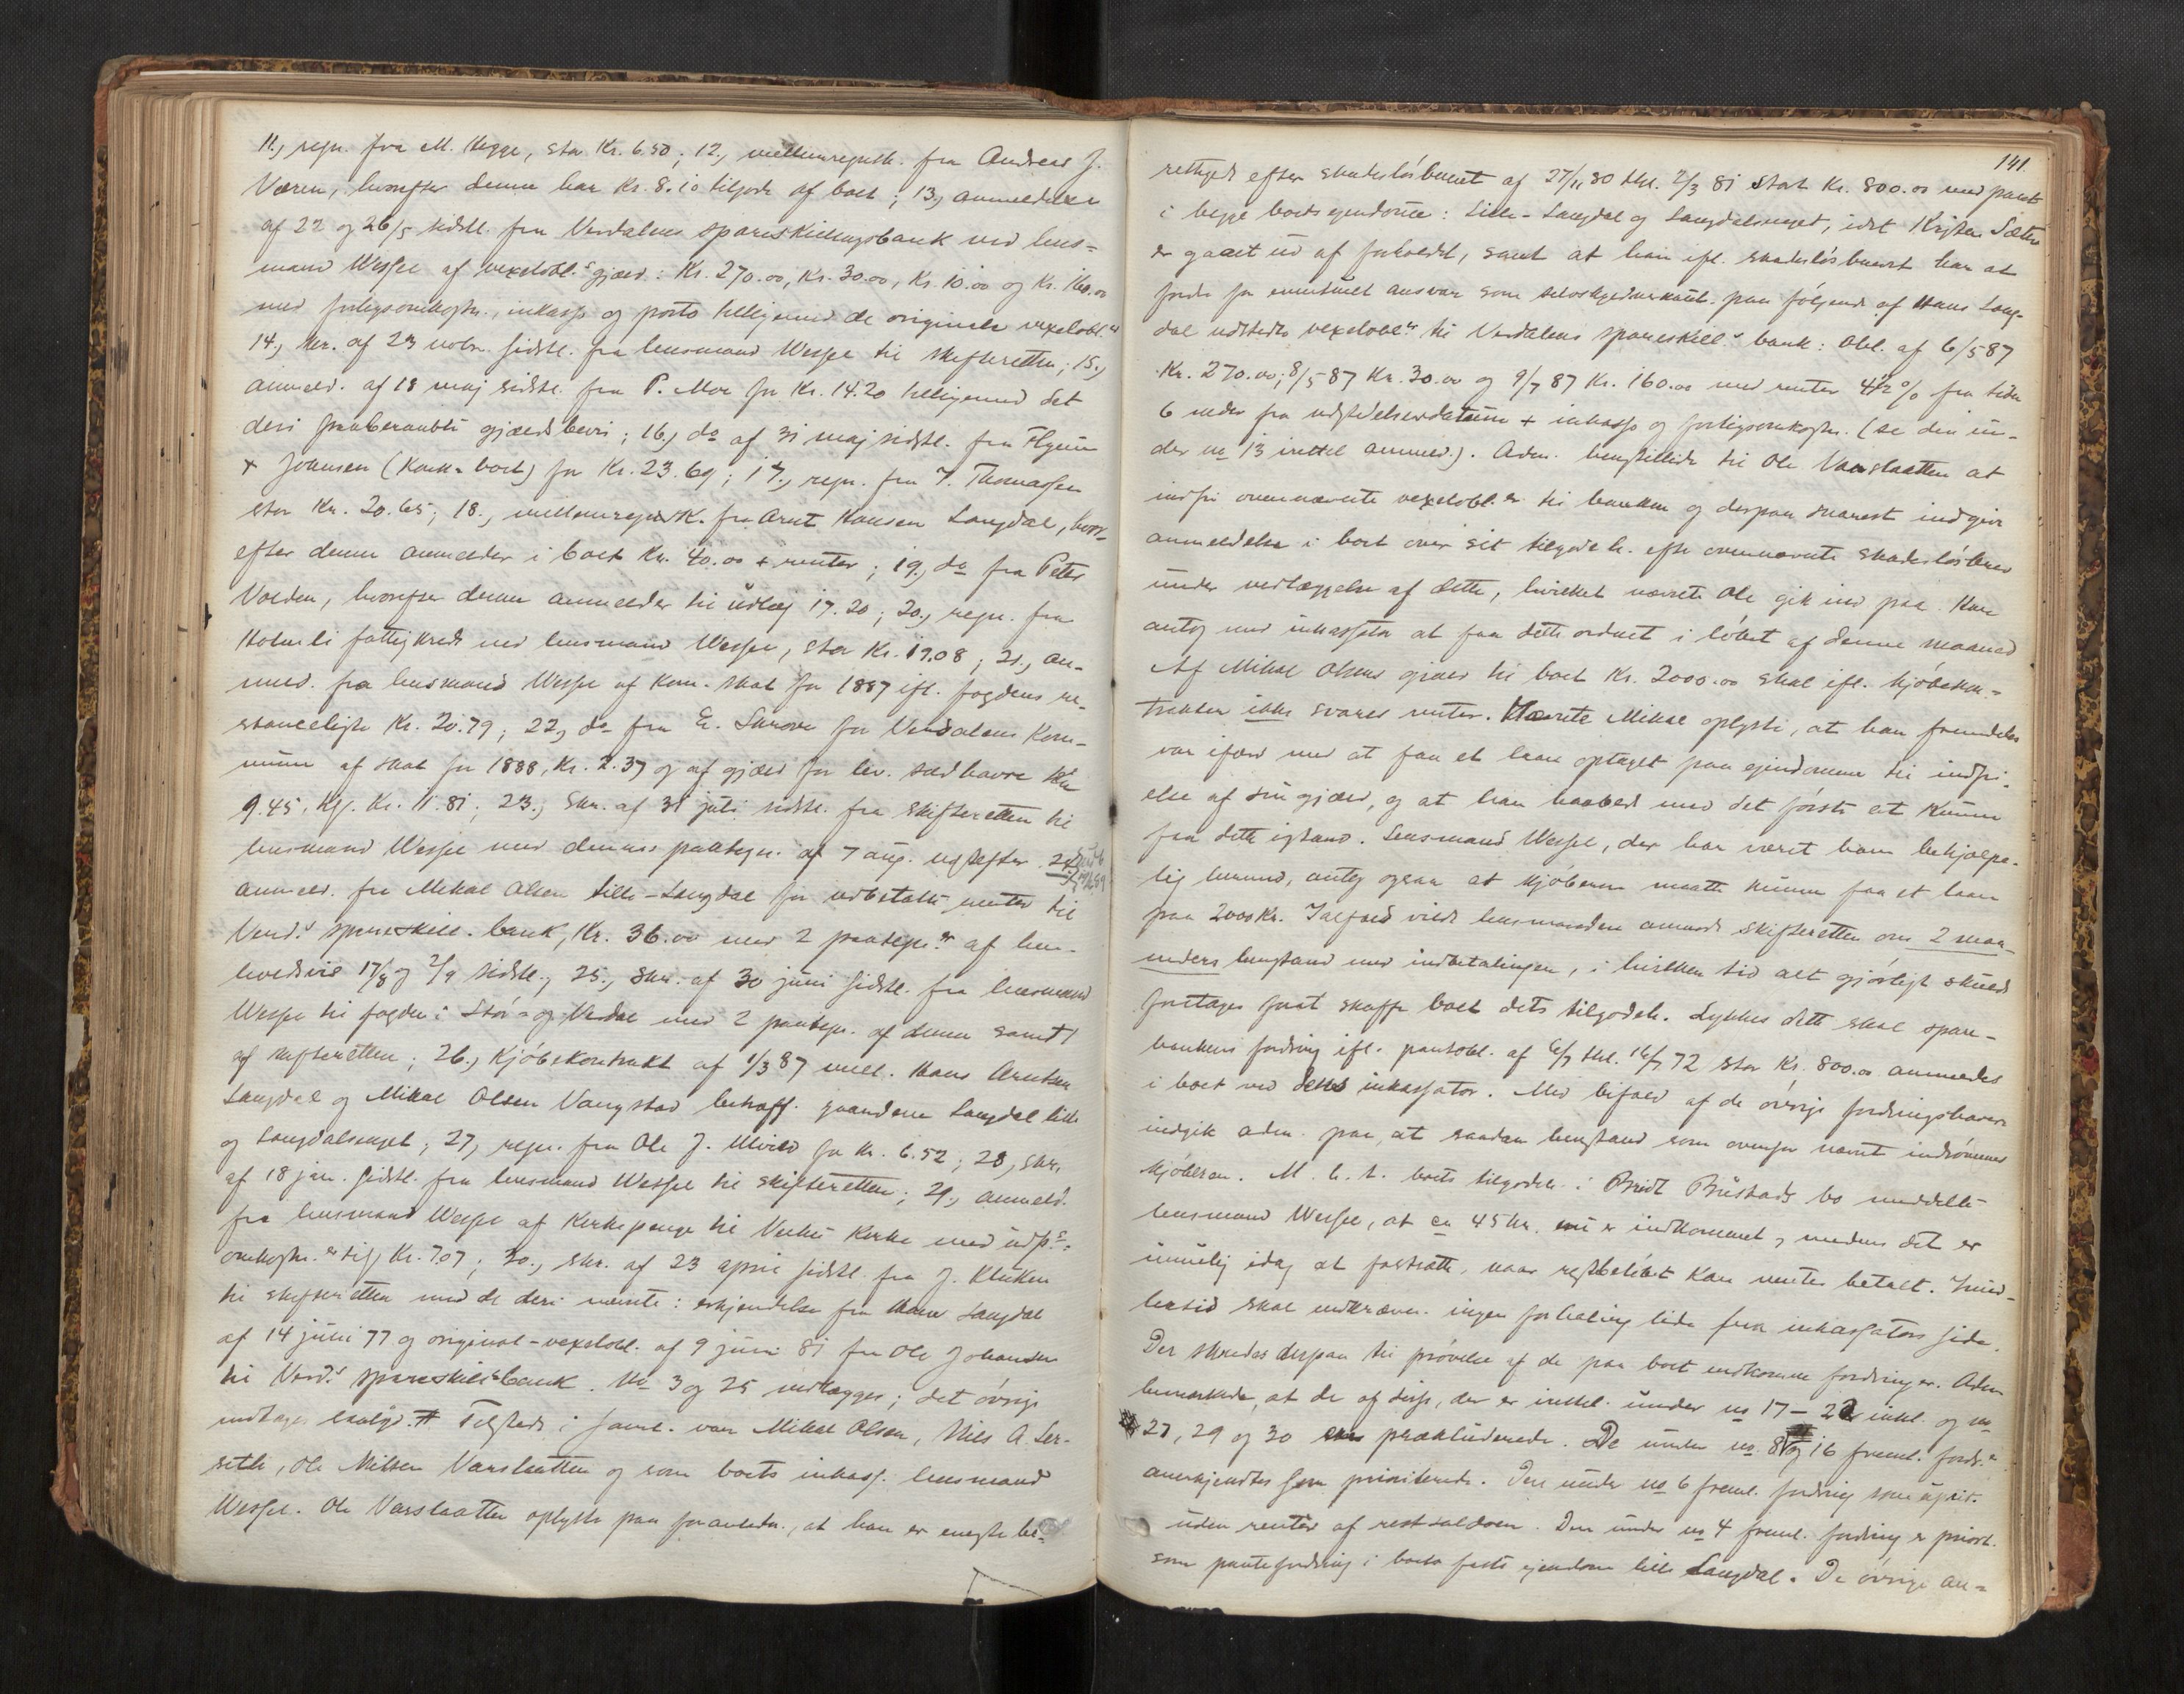 11., regn. fra M. Hegge, stor Kr. 6.50; 12., mellemregnsk. fra Andreas J.
Væren, hvorefter denne har Kr. 8.10 tilgode af boet; 13., anmeldelse
af 22 og 26/5 sidstl. fra Værdalens spareskillingsbank ved lens-
mand Wessel af vexelobl.s gjæld: Kr. 270.00, Kr. 30.00, Kr. 10.00 og Kr. 160.00
med forligsomkostn., inkasso og porto helligemed de originale vexelobl.er
14., skr. af 23 novbr. sidstl. fra lensmand Wessel til skifteretten; 15.,
anmeld. af 18 maj sidstl. fra P. Moe for Kr. 14.20 helligemed det
deri paaberaabte gjældsbevis; 16., do af 31 maj sidstl. fra
& Johnsen (Konk.bort) for Kr. 23.69; 17., regn. fra T. Thomassen
stor Kr. 20.65; 18., mellemregnsk. fra Arnt Hansen Langdal, hvor-
efter denne anmelder i boet Kr. 40.00 + renter; 19., do fra Peter
Volden, hvorefter denne anmelder til udlæg 17.20; 20., regn. fra
Holmli fattigkreds ved lensmand Wessel, stor Kr. 19.08; 21., an-
meld. fra lensmand Wessel af kom. skat for 1887 ifl. fogdens re-
stanceliste Kr. 20.79; 22., do fra E. Skrove for Værdalens Kom-
mune af skat for 1888, Kr. 2.37 og af gjæld for lev. sædhavre
9.45, tils. Kr. 11.81; 23., skr. af 31 juli sidstl. fra skifteretten til
lensmand Wessel med dennes paategn. af 7 aug. næstefter 24,
anmeld. fra Mikal Olsen Lille-Langdal for udbetalte renter til
Værd.s spareskill. bank, Kr. 36.00 med 2 paategn.er af hen-
holdsvis 17/8 og 2/9 sidstl.; 25., skr. af 30 juni sidstl. fra lensmand
Wessel til fogden i Stør- og Værdal med 2 paategn. af denne samt 1
af skifteretten; 26., Kjøbekontrakt af 1/3 87 mell. Hans Arntsen
Langdal og Mikal Olsen Vangstad betræff. gaardene Langdal lille
og Langdalsenget; 27., regn. fra Ole J. Mikvold for Kr. 6.52; 28., skr.
af 18 jan. sidstl. fra lensmand Wessel til skifteretten; 29., anmeld.
fra lensmand Wessel af kirkepenge til Vuku kirke med udp.s-
omkostn.er tils. Kr. 7.07; 30., skr. af 23 april sidstl. fra J. Kluken
til skifteretten med de deri nævnte: erkjendelse fra Hans Langdal
af 14 juni 77 og original-vexelobl. af 9 juni 81 fra Ole Johansen
til Værd.s spareskill.s bank. No 3 og 25 vedlægges; det øvrige
indtages saalyd. # Tilstede i saml. var Mikal Olsen, Nils A. Ler-
setli, Ole Nilsen Varslaatten og som boets inkass. lensmand
Wessel. Ole Varslaatten oplyste paa foranledn., at han er eneste be-
141.
rettiget efter skadesløsbrevet af 27/11 80 thl. 2/3 81 stort Kr. 800.00 med pant
i begge boets ejendomme: Lille-Langdal og Langdalsenget, idet Kristen Sæter
er gaaet ud af forholdet, samt at han ifl. skadesløsbrevet har at
fordre for eventuelt ansvar som selvskyldnerkaut. paa følgende af Hans Lang-
dal udstedte vexelobl.er til Værdalens spareskill.s bank: Obl. af 6/5 87
Kr. 270.00; 8/5 87 Kr. 30.00 og 9/7 87 Kr. 160.00 med renter 4½ % fra siden
6 mdr fra udstedelsesdatum + inkasso og forligsomkostn. (se den un-
der no 13 indtel anmeld.). Adm. henstillede til Ole Varslaatten at
indfri ovennævnte vexelobl.er til banken og derpaa snarest indgive
anmeldelse i boet over sit tilgodeh. efter ovennævnte skadesløsbrev
under vedlæggelse af dette, hvilket nævnte Ole gik ind paa. Han
antog med inkassator at faa dette ordnet i løbet af denne maaned
Af Mikal Olsens gjæld til boet Kr. 2000.00 skal ifl. kjøbekon-
trakten ikke svares renter. Nævnte Mikal oplyste, at han fremdeles
var ifærd med at faa et laan optaget paa ejendommen til indfri-
else af sin gjæld, og at han haabede med det første at kunne
faa dette istand. Lensmand Wessel, der har været ham behjælpe-
lig hermed, antog ogsaa at kjøberen maatte kunne faa et laan
paa 2000 Kr. Ialfald vilde lensmanden anmode skifteretten om 2 maa-
neders henstand med indbetalingen, i hvilken tid alt gjørligt skulde
foretages forat skaffe boet dets tilgodeh. Lykkes dette skal spare-
bankens fordring ifl. pantobl. af 6/7 thl. 16/7 72 stor Kr. 800.00 anmeldes
i boet ved dettes inkassator. Med bifald af de øvrige fordringshavere
indgik adm. paa, at saadan henstand som ovenfor nævnt indrømmes
Kjøberen. M. h. t. boets tilgodeh. i Bredt Bustads bo meddelte
lensmand Wessel, at ca 45 kr. nu er indkommet, medens det er
umulig idag at fastsætte, naar restbeløbet kan ventes betalt. Imid-
lertid skal indkrævn. ingen forhaling lide fra inkassators side.
Der skredes derpaa til prøvelse af de paa boet indkomne fordringer. Adm.
bemærkede, at de af disse, der er indtel. under no 17 - 22 inkl. og no
27, 29 og 30 prækluderede. De under no. 8 og 16 freml. fordr.er
anerkjendtes som prioriterede. Den under no 6 freml. fordring som uprit.
uden renter af restsaldoen. Den under no 4 freml. fordring er priort.
som pantefordring i boets faste ejendom lille Langdal. De øvrige an-